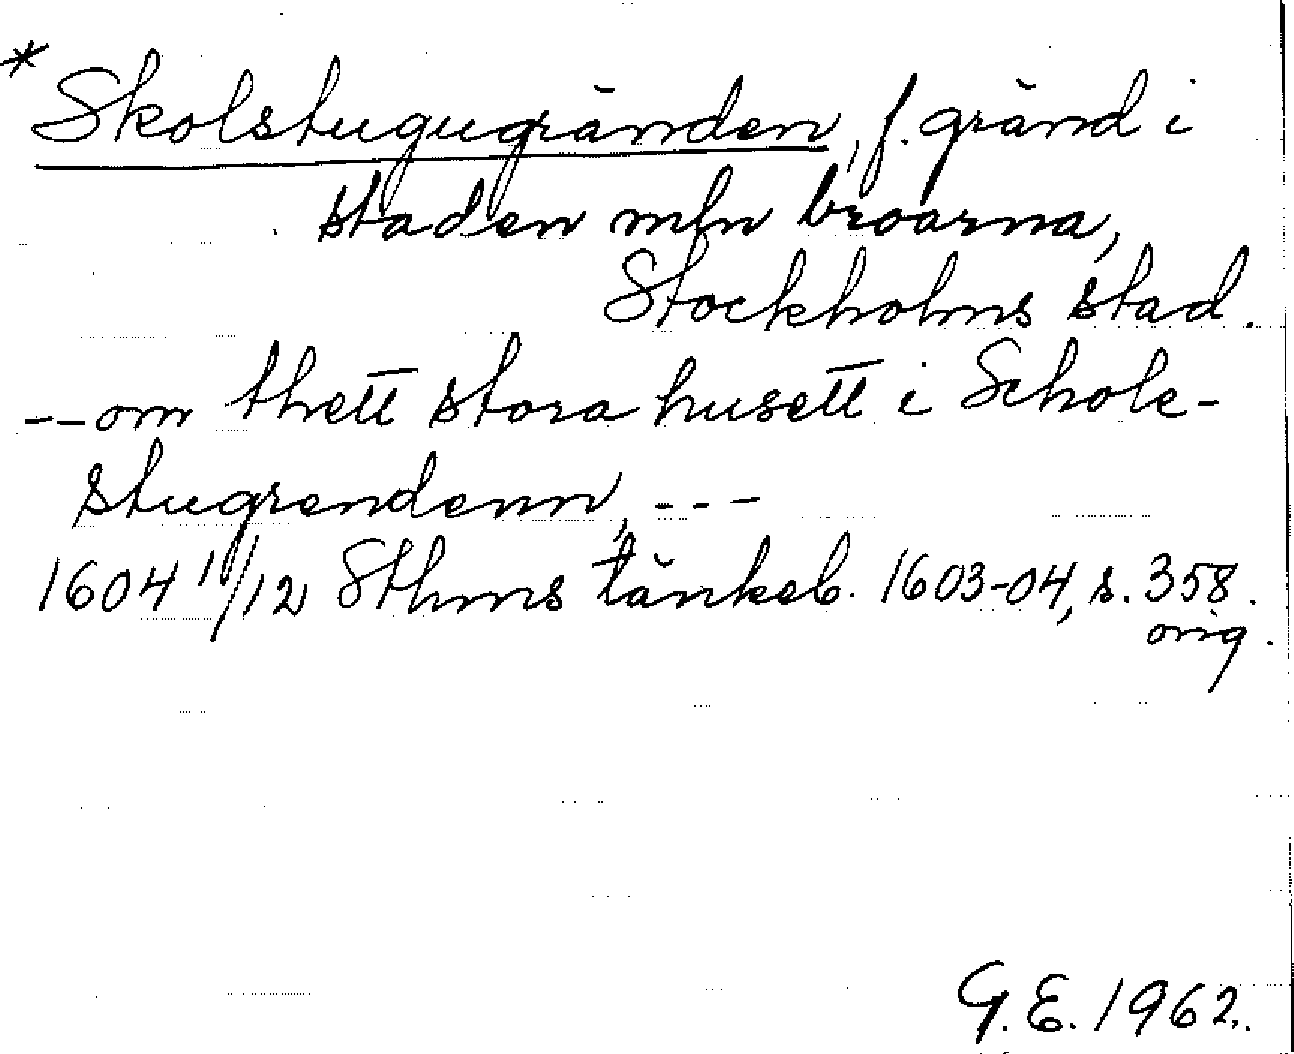 * Skolstugugränden, f. gränd i
staden mln broarna,
Stockholms stad.
-- om thett stora husett i Schole-
stugrendenn, ---
1604 11/12 Sthms tänkeb. 1603-04, s. 358.
orig.
G. E. 1962.